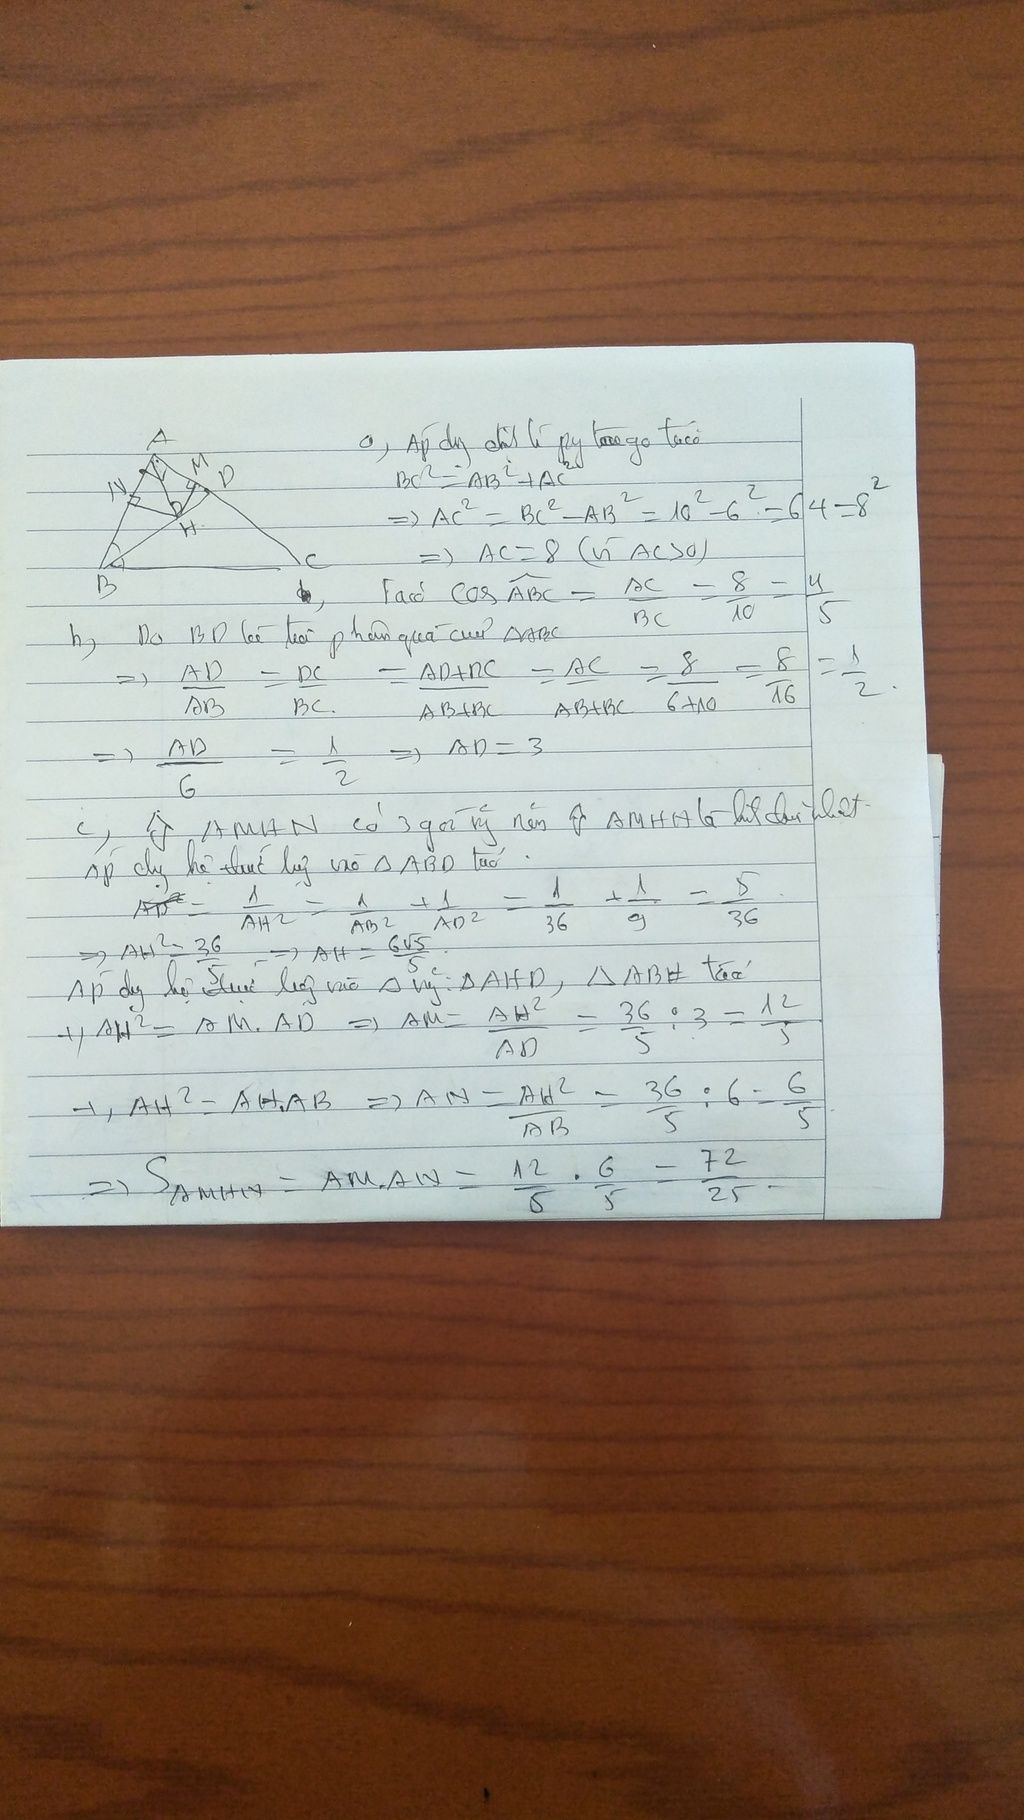 A
N
M
D
H
B
C
a, Áp dụng định lí pytago ta có
BC² = AB² + AC²
=> AC² = BC² - AB² = 10² - 6² = 64 = 8²
=> AC = 8 (vì AC > 0)
Ta có cos ABC = AC/BC = 8/10 = 4/5
b, Do BD là tia phân giác của ΔABC
=> AD/AB = DC/BC = AD+DC/AB+BC = AC/AB+BC = 8/6+10 = 8/16 = 1/2.
=> AD/6 = 1/2 => AD = 3
c, AMHN có 3 góc vg nên AMHN là hình chữ nhật
Áp dụng hệ thức lượng vào ΔABD ta có.
= 1/AH² = 1/AB² + 1/AD² = 1/36 + 1/9 = 5/36.
=> AH² = 36/5 => AH = 6√5/5.
Áp dụng hệ thức lượng vào Δ vg: ΔAHD, ΔABH ta có
+, AH² = AM.AD => AM = AH²/AD = 36/5 : 3 = 12/5
+, AH² = AH.AB => AN = AH²/AB = 36/5 : 6 = 6/5
=> S AMHN = AM.AN = 12/5 . 6/5 = 72/25.